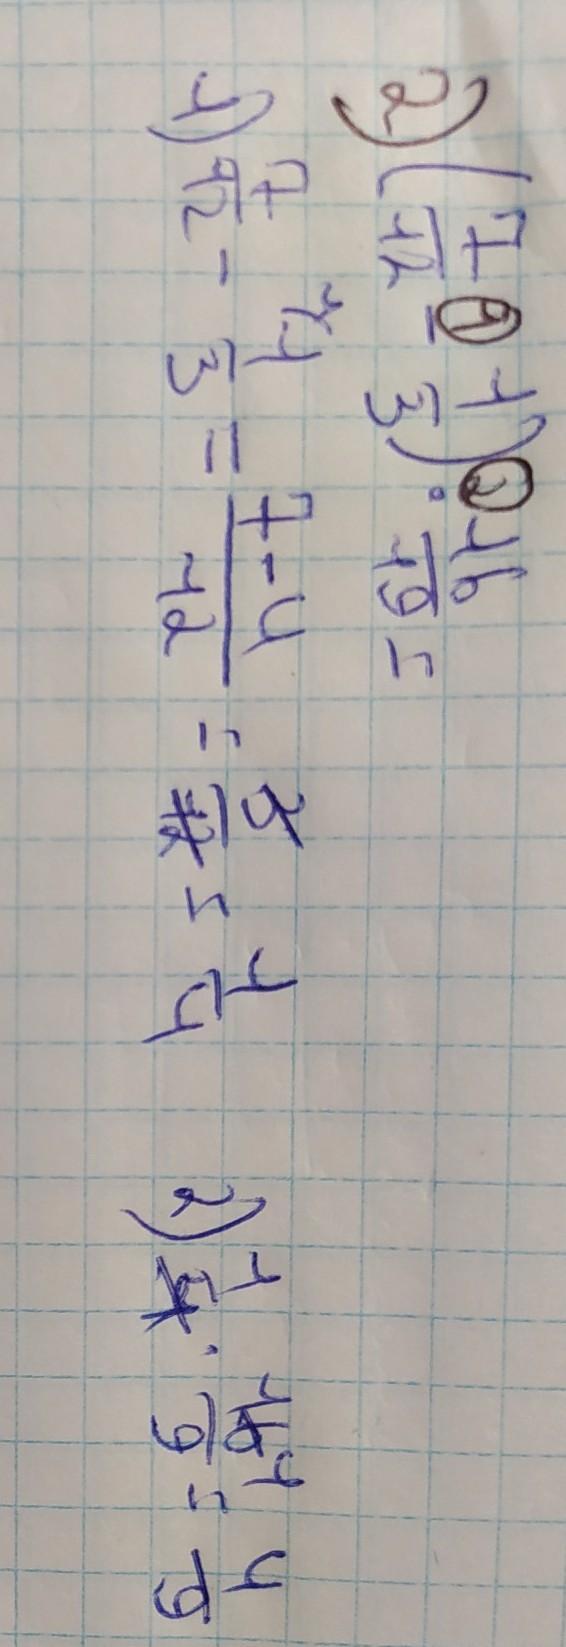 2) (7/12 - 1/3) · 16/19 =
1) 7/12 - 1/3 = 7-4/12 = 3/12 = 1/4
2) 1/4 · 16/9 = 4/9